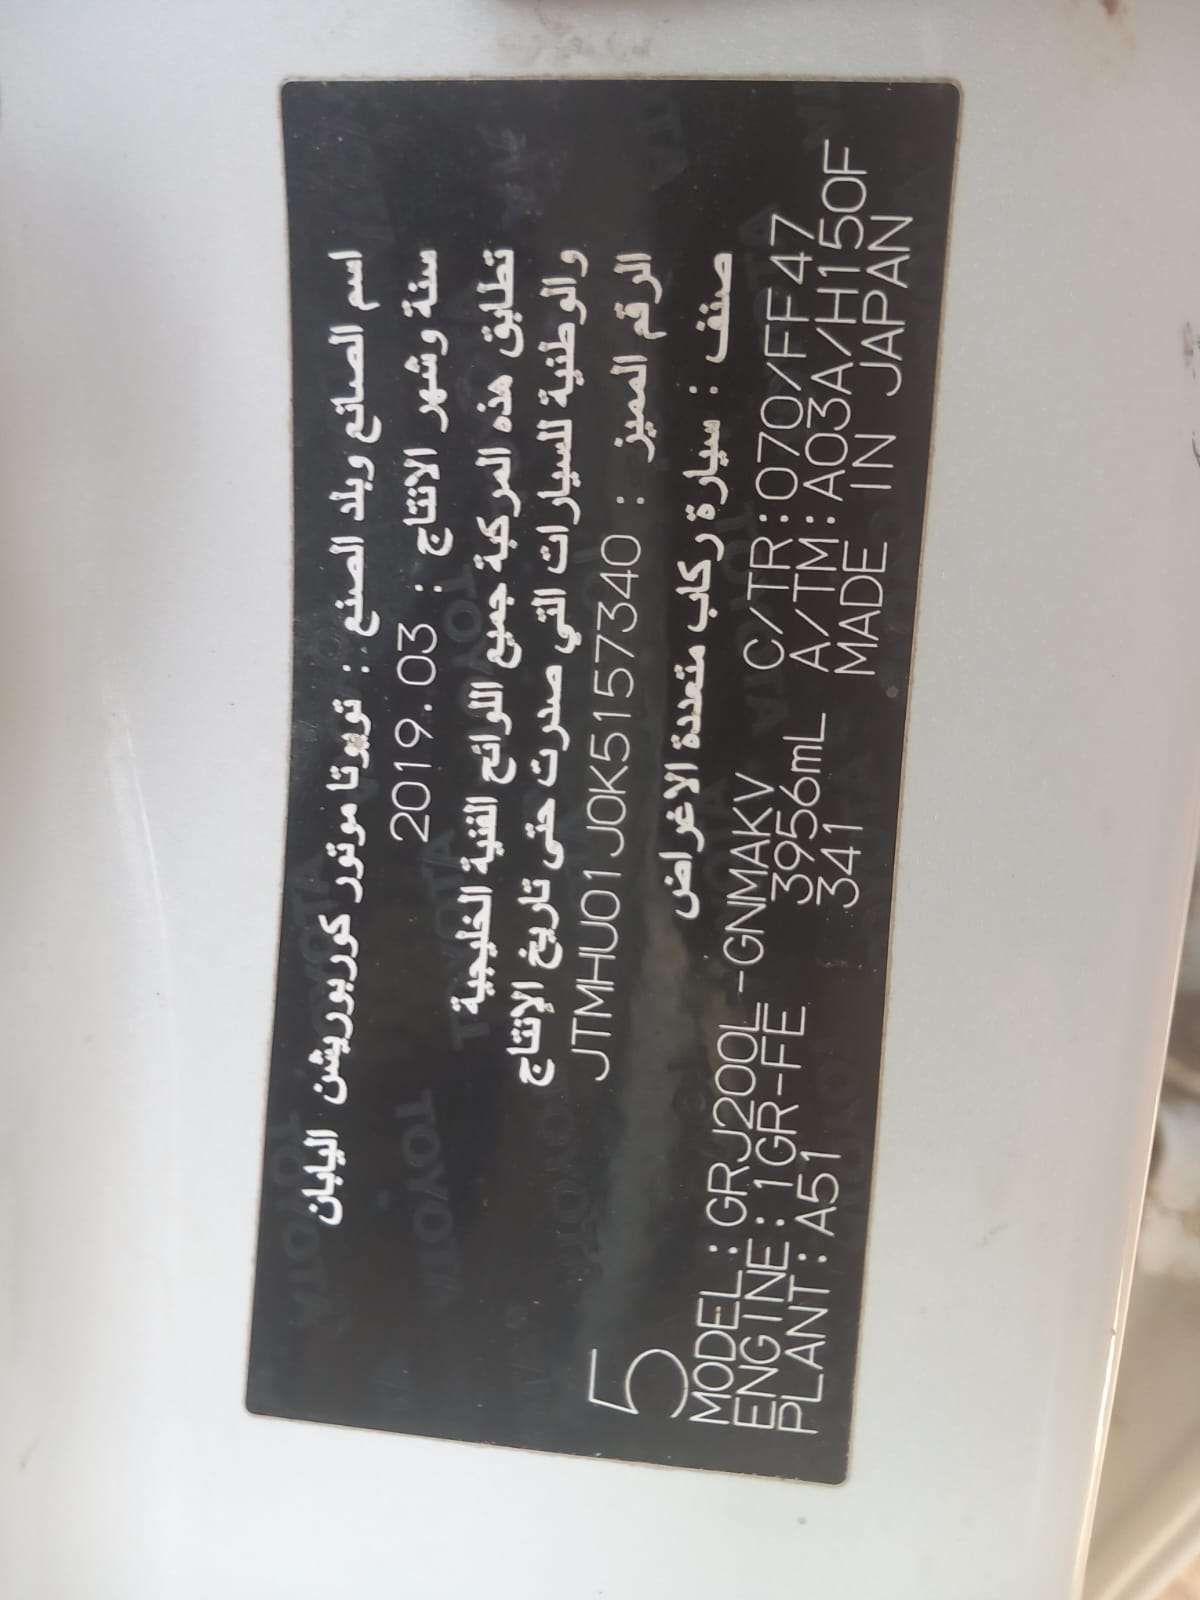 اسم الصانع وبلد الصنع : تويوتا موتور كوربوريشن اليابان
سنة وشهر الانتاج : 2019.03
تطابق هذه المركبة جميع اللوائح الفنية الخليجية
والوطنية للسيارات التي صدرت حتى تاريخ الإنتاج
الرقم المميز : JTMHU01J0K5157340
صنف : سيارة ركاب متعددة الاغراض
5
MODEL:GRJ200L-GNMAKV C/TR:070/FF47
ENGINE:1GR-FE 3956mL A/TM:A03A/H150F
PLANT:A51 341 MADE IN JAPAN